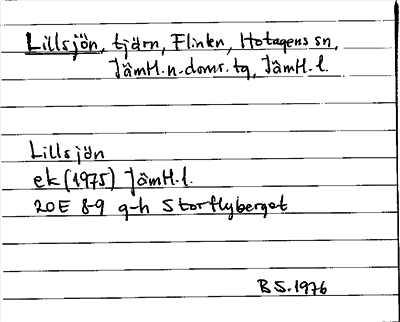 Lillsjön, tjärn, Flinten, Hotagens sn,
Jämtl.n.doms.tg, Jämtl.l.
Lillsjön
ek (1975) Jämtl.l.
20E 8-9 g-h Storflyberget
BS.1976